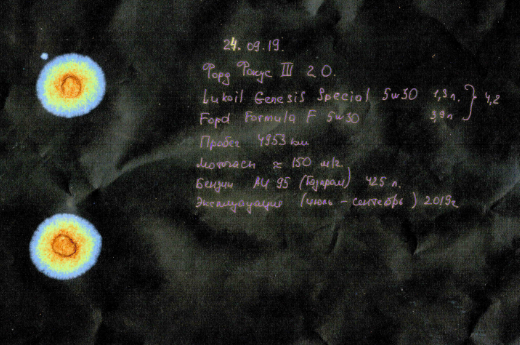 24.09.19.
Форд Фокус III 2.0.
Lukoil Genesis Special 5w30 1,3 л. } 4,2
Ford Formula F 5w30 2,9 л
Пробег 4953 км
моточасы ≈ 150 м/ч.
Бензин АИ 95 (Газпром) 425 л.
Эксплуатация (июль - сентябрь) 2019г